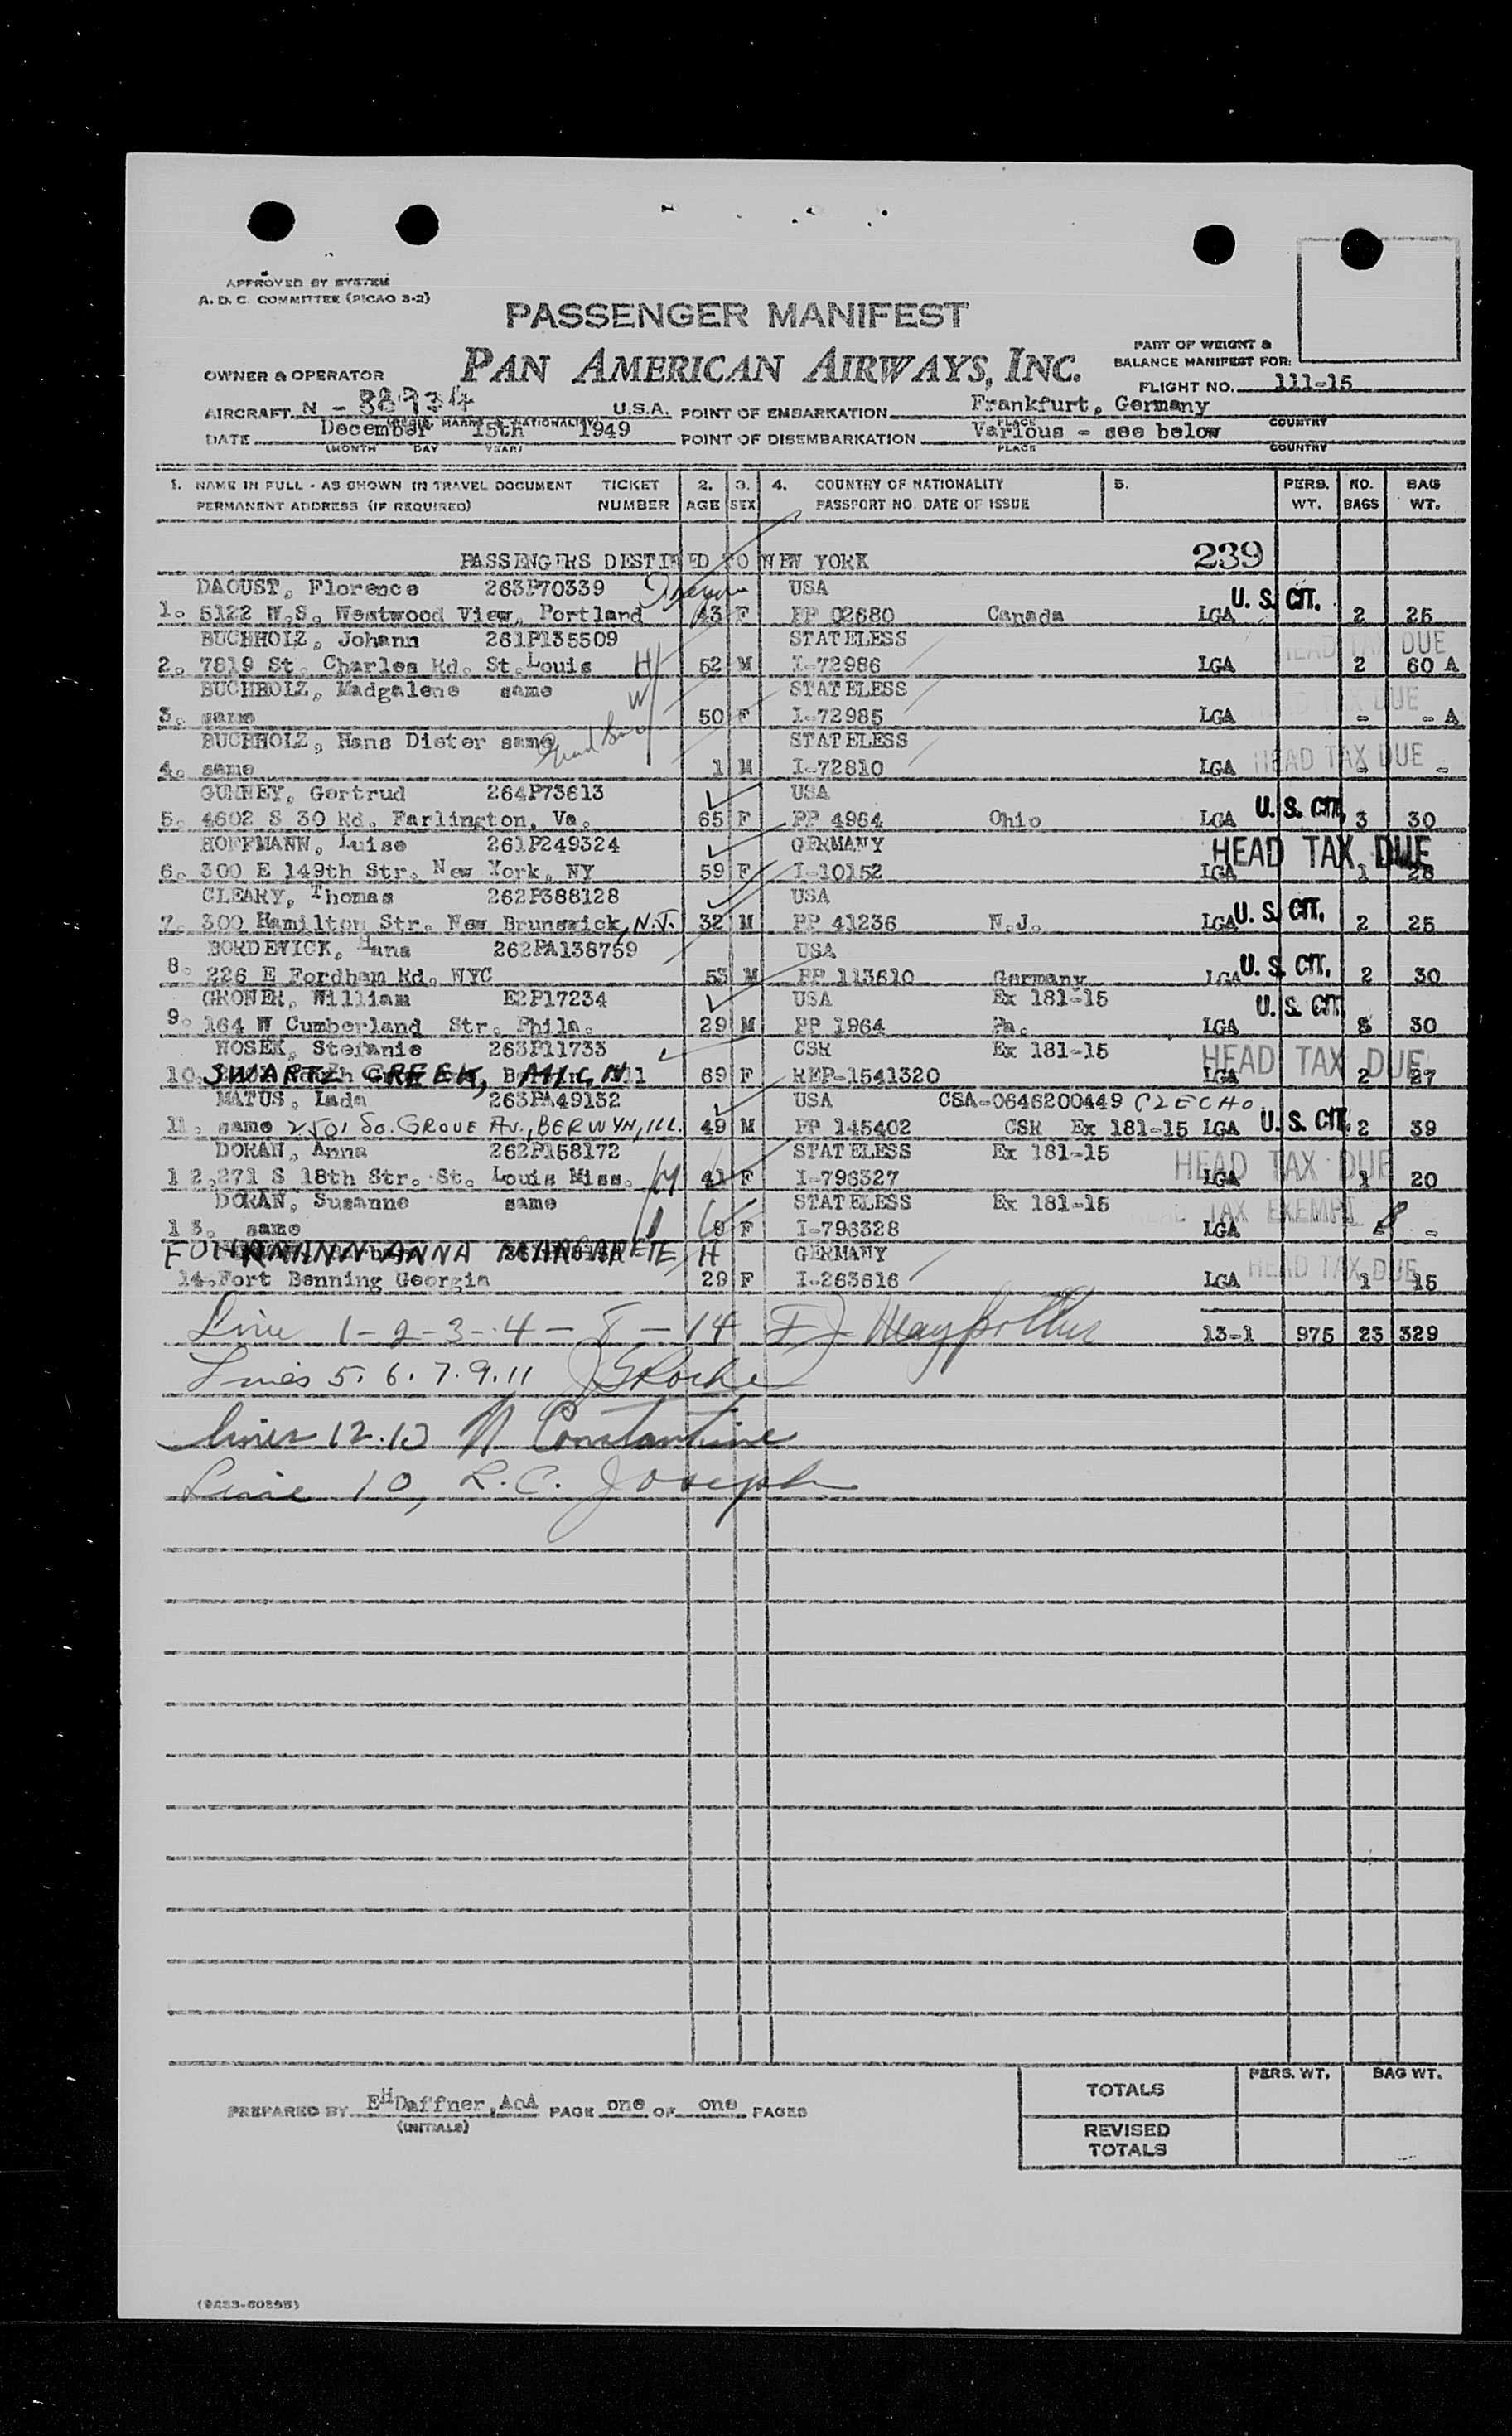 APPROVED BY SYSTEM
A. D. C. COMMITTEE (PICAO 3-2)
PASSENGER MANIFEST
PAN AMERICAN AIRWAYS, INC.
PART OF WEIGHT &
BALANCE MANIFEST FOR:
OWNER & OPERATOR
FLIGHT NO. 111-15
AIRCRAFT N - 88934 U.S.A. POINT OF EMBARKATION Frankfurt, Germany
PLACE COUNTRY
DATE December 15th 1949 POINT OF DISEMBARKATION Various - see below
(MONTH DAY YEAR) PLACE COUNTRY
1. NAME IN FULL - AS SHOWN IN TRAVEL DOCUMENT TICKET 2. 3. 4. COUNTRY OF NATIONALITY 5. PERS. NO. BAG
PERMANENT ADDRESS (IF REQUIRED) NUMBER AGE SEX PASSPORT NO. DATE OF ISSUE WT. BAGS WT.
PASSENGERS DESTINED TO NEW YORK 239
DAOUST, Florence 263P70339 USA
1. 5122 W.S. Westwood View, Portland 43 F PP 02680 Canada LGA U. S. CIT. 2 25
BUCHHOLZ, Johann 261P135509 STATELESS HEAD TAX DUE
2. 7819 St. Charles Rd. St.Louis H 52 M I-72986 LGA 2 60 A
BUCHHOLZ, Madgalene same W STATELESS HEAD TAX DUE
3. same 50 F I-72985 LGA - - A
BUCHHOLZ, Hans Dieter same STATELESS
4. same 1 M I-72810 LGA HEAD TAX DUE - -
GURNEY, Gertrud 264P73613 USA
5. 4602 S 30 Rd. Farlington, Va. 65 F PP 4964 Ohio LGA U. S. CIT. 3 30
HOFFMANN, Luise 261P249324 GERMANY HEAD TAX DUE
6. 300 E 149th Str. New York, NY 59 F I-10152 LGA 1 28
CLEARY, Thomas 262P388128 USA
7. 300 Hamilton Str. New Brunswick, N.J. 32 M PP 41236 N.J. LGA U. S. CIT. 2 25
BORDEVICK, Hans 262PA138759 USA
8. 226 E Fordham Rd. NYC 53 M PP 113610 Germany LGA U. S. CIT. 2 30
GRONER, William E2P17234 USA Ex 181-15 U. S. CIT.
9. 164 W Cumberland Str. Phila. 29 M PP 1964 Pa. LGA 30
NOSEK, Stefanie 263P11733 CSR Ex 181-15 HEAD TAX DUE
10. SWARTZ CREEK, MICH 69 F REP-1541320 LGA 2 27
MATUS, Lada 263PA49132 USA CSA-0646200449 CZECHO
11. same 2501 So. GROVE AV., BERWYN, ILL. 49 M PP 145402 CSR Ex 181-15 LGA U. S. CIT. 2 39
DORAN, Anna 262P158172 STATELESS Ex 181-15 HEAD TAX DUE
12. 271 S 18th Str. St. Louis Miss. 41 F I-796327 LGA 1 20
DORAN, Susanne same STATELESS Ex 181-15 HEAD TAX EXEMPT
13. same 9 F I-796328 LGA -
ANNA MARGARETE H GERMANY HEAD TAX DUE
14. Fort Benning Georgia 29 F I-263616 LGA 1 15
Line 1-2-3-4-8-14 13-1 975 23 329
Lines 5. 6. 7. 9. 11 Roche
lines 12.13 N Constantine
Line 10, R.C. Joseph
PREPARED BY EHDaffner, AoA PAGE one OF one PAGES
(INITIALS)
PERS. WT. BAG WT.
TOTALS
REVISED
TOTALS